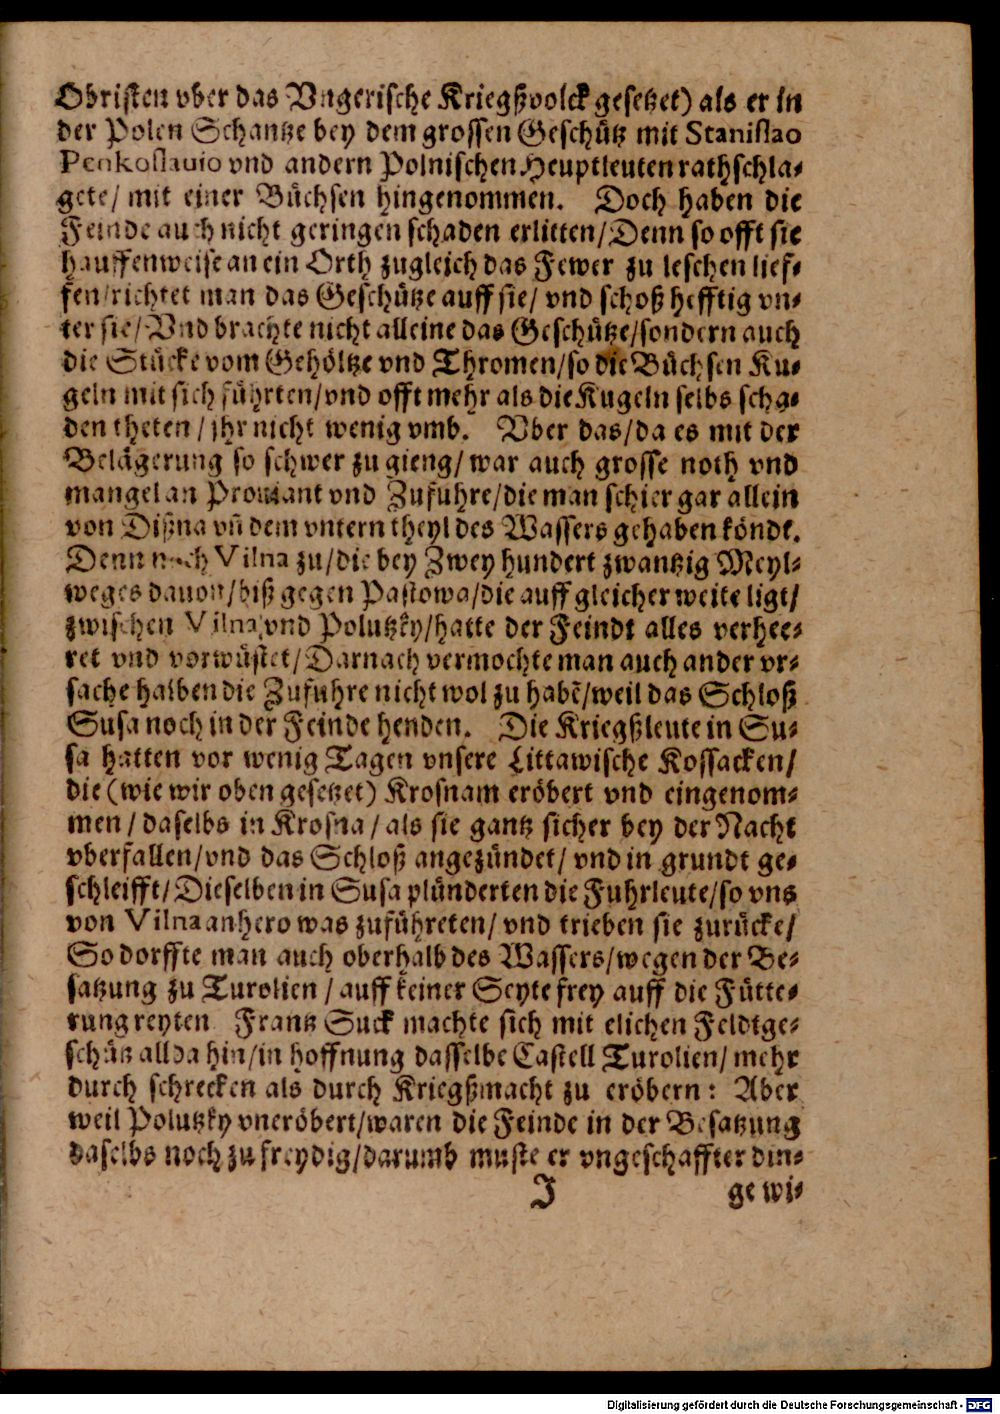 Obristen vber das Vngerische Kriegßvolck gesetzet) als er in
der Polen Schantze bey dem grossen Geschütz mit Stanislao
Penkoslauio vnd andern Polnischen Heuptleuten rathschla⸗
gete/ mit einer Büchsen hingenommen. Doch haben die
Feinde auch nicht geringen schaden erlitten/Denn so offt sie
hauffenweise an ein Orth zugleich das Fewer zu leschen lief⸗
fen/richtet man das Geschütze auff sie/ vnd schoß hefftig vn⸗
ter sie/Vnd brachte nicht alleine das Geschütze/sondern auch
die Stücke vom Gehöltze vnd Thromen/so die Büchsen Ku⸗
geln mit sich führten/vnd offt mehr als die Kugeln selbs scha⸗
den theten/jhr nicht wenig vmb. Vber das/da es mit der
Belägerung so schwer zu gieng/war auch grosse noth vnd
mangel an Prouiant vnd Zufuhre/die man schier gar allein
von Dißna vn̄ dem vntern theyl des Wassers gehaben köndt.
Denn nach Vilna zu/die bey Zwey hundert zwantzig Meyl⸗
weges dauon/biß gegen Pastowa/die auff gleicher weite ligt/
zwischen Vilna vnd Polutzky/hatte der Feindt alles verhee⸗
ret vnd vorwüstet/Darnach vermochte man auch ander vr⸗
sache halben die Zufuhre nicht wol zu habē/weil das Schloß
Susa noch in der Feinde henden. Die Kriegßleute in Su⸗
sa hatten vor wenig Tagen vnsere Littawische Kossacken/
die (wie wir oben gesetzet) Krosnam eröbert vnd eingenom⸗
men/ daselbs in Krosna/ als sie gantz sicher bey der Nacht
vberfallen/vnd das Schloß angezündet/ vnd in grundt ge⸗
schleifft/Dieselben in Susa plünderten die Fuhrleute/so vns
von Vilna anhero was zuführeten/ vnd trieben sie zurücke/
So dorffte man auch oberhalb des Wassers/wegen der Be⸗
satzung zu Turolien/ auff keiner Seyte frey auff die Fütte⸗
rung reyten Frantz Suck machte sich mit elichen Feldtge⸗
schütz allda hin/in hoffnung dasselbe Castell Turolien/ mehr
durch schrecken als durch Kriegßmacht zu eröbern: Aber
weil Polutzky vneröbert/waren die Feinde in der Besatzung
daselbs noch zu freydig/darumb muste er vngeschaffter din⸗
J ge wi⸗
Digitalisierung gefördert durch die Deutsche Forschungsgemeinschaft - DFG